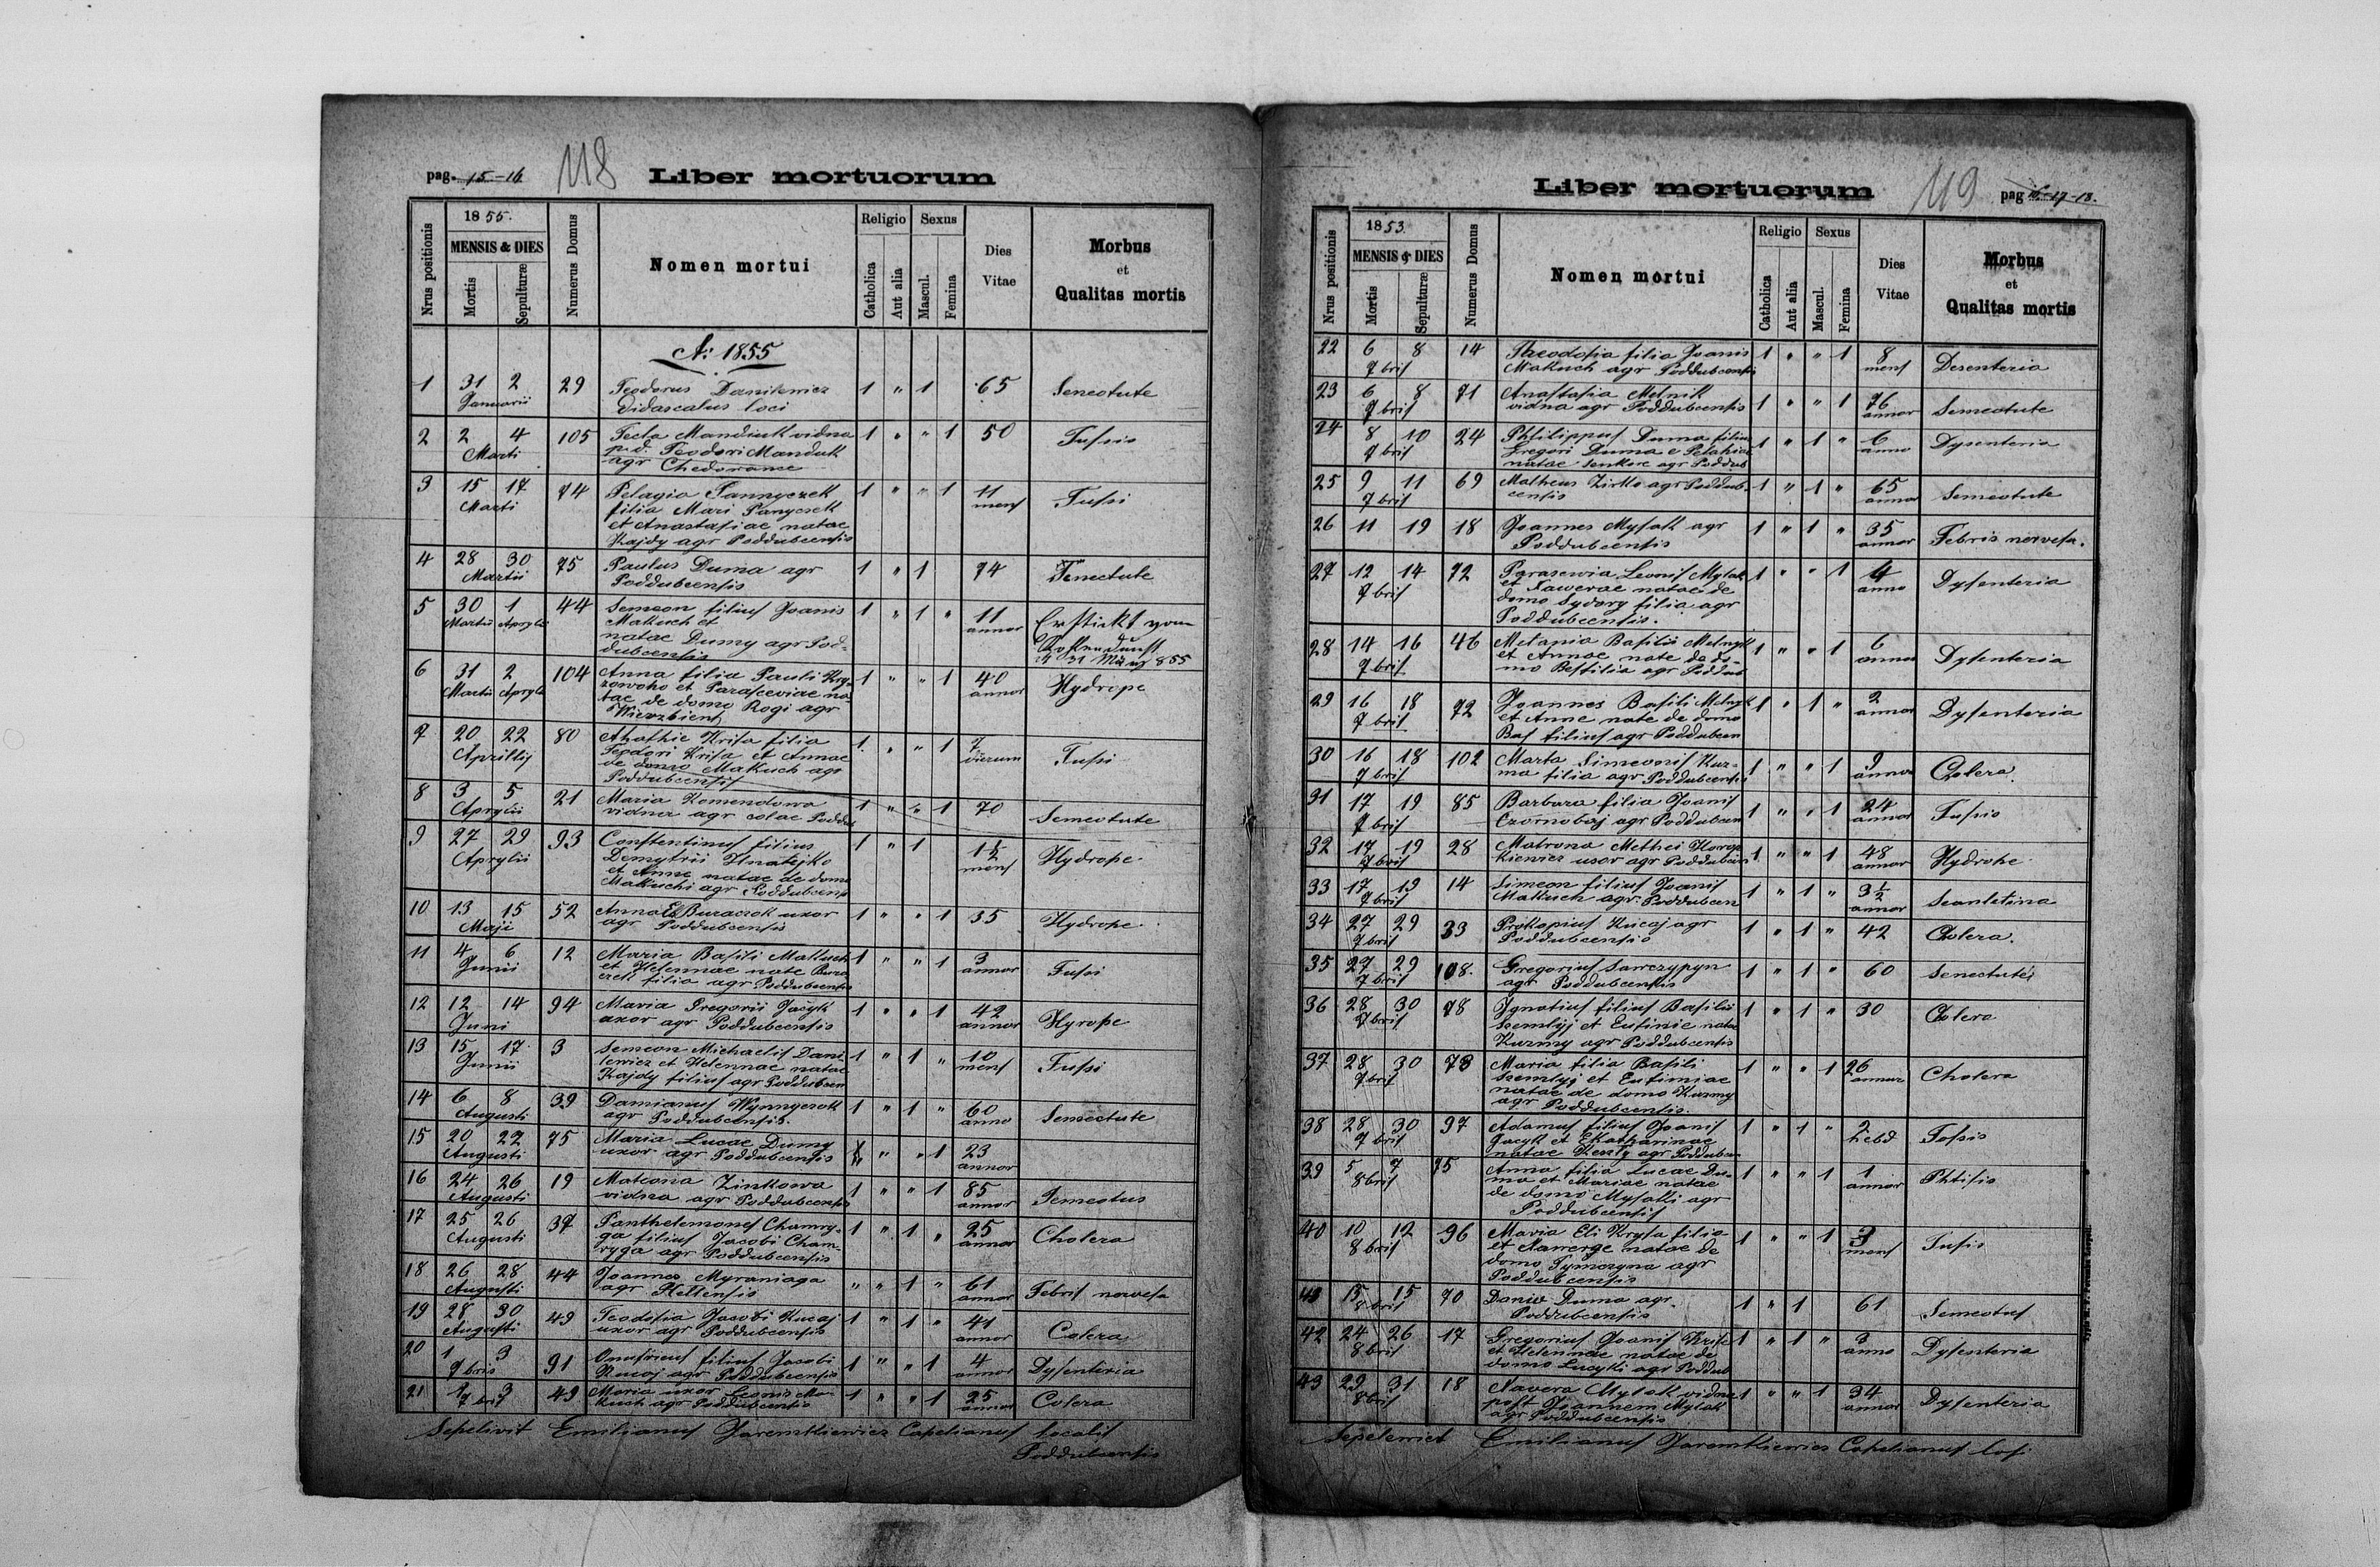 pag. 15-16 118 Liber mortuorum
Nrus positionis
1855.
MENSIS & DIES
Mortis
Sepulturæ
Numerus Domus
Nomen mortui
Religio
Catholica
Aut alia
Sexus
Mascul.
Femina
Dies
Vitae
Morbus
et
Qualitas mortis
A: 1855
1 31 2 29 Teodorus Danilewicz 1 " 1 65 Senectute
Januarii Didascalus loci
2 2 4 105 Tecla Mandiuk vidua 1 " " 1 50 Tussis
Marti p.d. Teodori Manduk
agr
3 15 17 74 Pelagia Pannyczek 1 " " 1 11 Tussi
Marti filia Mari Panyczek mens
et Anastasiae natae
Kajdy agr Poddubcensis
4 28 30 75 Paulus Duma agr 1 " 1 74 Senectute
Martii Poddubcensis
5 30 1 44 Semeon filius Joanis 1 " 1 " 11 Erstickt vom
Martii Aprylii Makuch et annor
natae Dumy agr Pod-
dubcensis 31 März 855
6 31 2 104 Anna filia Pauli Kry- 1 " " 1 40 Hydrope
Martii Aprylii zowoho et Parasceviae na- annor
tae de domo Rogi agr
Wierzbiens
7 20 22 80 Ahathie Krisa filia 1 " " 1 7 Tussi
Aprillij Teodori Krisa et Annae dierum
de domo Makuch agr
Poddubcensis
8 3 5 21 Maria Komendowa 1 " " 1 70 Semeotute
Aprylii vidua agr colae Poddub
9 27 29 93 Constentinus filius 1 " 1 1½ Hydrope
Aprylii Demytrii Hnatejko mens
et Anne natae de domo
Makuchi agr Poddubcens
10 13 15 52 Anna Buraczok uxor 1 " " 1 35 Hydrope
Maji agr Poddubcensis
11 4 6 12 Maria Basili Makuch 1 " " 1 3 Tussi
Junii et Helennae nate Bura annor
czek filia agr Poddubcensis
12 12 14 94 Maria Gregorii Jacyk 1 " " 1 42 Hyrope
Juni uxor agr Poddubcensis annor
13 15 17 3 Semeon Michaelis Dani- 1 " 1 " 10 Tussi
Junii lewicz et Helennae natae mens
Kajdy filius agr Poddubcen
14 6 8 39 Damianus Wynnyczok 1 " 1 " 60 Semectute
Augusti agr Poddubcensis. anno
15 20 22 75 Maria Lucae Dumy " " 1 23
Augusti uxor agr Poddubcensis annor
16 24 26 19 Zinkowa 1 " " 1 85 Semeotus
Augusti vidua agr Poddubcensis annor
17 25 26 37 Panthelemones Chamry- 1 " 1 " 25 Cholera
Augusti ga filius Jacobi Cham- annor
ryga agr Poddubcensis
18 26 28 44 Joannes Myraniaga " " 1 " 61 Febris nervesa
Augusti agr annor
19 28 30 49 Teodosia Jacobi Kucaj 1 " 1 " 41 Colera
Augusti uxor agr Poddubcensis annor
20 1 3 91 Onufrius filius Jacobi 1 " " 1 4 Dysenteria
7bris Kucaj agr Poddubcensis annor
21 1 3 49 Maria uxor Leonis Ma- 1 " " 1 25 Colera
7bris kuch agr Poddubcensis annor
Sepelivit Emilianus Jaremkiewicz Capelianus localis
Poddubcensis
Liber mortuorum 119 pag 16-17-18.
Nrus positionis
1853.
MENSIS & DIES
Mortis
Sepulturæ
Numerus Domus
Nomen mortui
Religio
Catholica
Aut alia
Sexus
Mascul.
Femina
Dies
Vitae
Morbus
et
Qualitas mortis
22 6 8 14 Theodosia filia Joanis 1 " " 1 8 Desenteria
7bris Makuch agr Poddubcensis mens
23 6 8 71 Anastasia Melnik 1 " " 1 76 Semeotute
7bris vidua agr Poddubcensis annor
24 8 10 24 Phtilippus Duma filius 1 " 1 " 6 Dysenteria
7bris Gregori Duma e Pelahia anno
natae Senkow agr Poddub
25 9 11 69 Matheus Zirko agr Poddub- 1 " 1 " 65 Semeotute
7bris censis annor
26 11 19 18 Joannes Mysak agr 1 " 1 " 35 Febris nervesa.
Poddubcensis annor
27 12 14 72 Parasewia Leonis Mysak 1 " " 1 4 Dysenteria
7bris et Xawerae natae de anno
domo Sydory filia agr
Poddubcensis.
28 14 16 46 Melania Basilii Melnyk 1 " " 1 6 Dysenteria
7bris et Annae nate de do- annor
mo filia agr Poddub
29 16 18 72 Joannes Basili Melnyk 1 " 1 " 2 Dysenteria
7bris et Anne nate de domo annor
Bas filius agr Poddubcen
30 16 18 102 Marta Simeonis Kuz- 1 " " 1 9 Cholera.
7bris ma filia agr Poddubcensis annor
31 17 19 85 Barbara filia Joanis 1 " " 1 24 Tussis
7bris Czornobaj agr Poddubcen annor
32 17 19 28 Matrona Methei 1 " " 1 48 Hydrope
7bris kiewicz uxor agr Poddubcen annor
33 17 19 14 Simeon filius Joanis 1 " 1 " 3½ Scarletina
7bris Makuch agr Poddubcen annor
34 27 29 33 Prokopius Kucaj agr 1 " 1 " 42 Cholera.
7bris Poddubcensis
35 27 29 108. Gregorius Sawczypyn 1 " 1 " 60 Senectute
7bris agr Poddubcensis
36 28 30 78 Ignatius filius Basilii 1 " 1 " 30 Cholera
7bris Szemlyj et Eufimie natae
Kuzmy agr Poddubcensis
37 28 30 78 Maria filia Basili 1 " " 1 26 Cholera
7bris Szemlyj et Eufimiae annor
natae de domo Kuzmy
agr Poddubcensis.
38 28 30 97 Adamus filius Joanis 1 " 1 " 2 Tossis
7bris Jacyk et Ekatharinae hebd
natae agr Poddubcen
39 5 7 75 Anna filia Lucae Du- 1 " " 1 1 Phtisis
8bris ma et Mariae natae annor
de domo Mysakk agr
Poddubcensis
40 10 12 96 Maria Eli Krysa filia 1 " " 1 3 Tusis
8bris et natae de mens
domo Tymczyna agr
Poddubcensis
41 13 15 70 Daniw Duma agr. 1 " 1 61 Semeotus
8bris Poddubcensis
42 24 26 17 Gregorius Joanis Krise 1 " 1 " 3 Dysenteria
8bris et Helennae natae de anno
domo Lucyki agr Poddub
43 29 31 18 Navera Mysak vidua 1 " " 1 34 Dysenteria
8bris post Joannem Mysak annor
agr Poddubcensis
Sepelewiet Emilianus Jaremkiewicz Capelianus loci